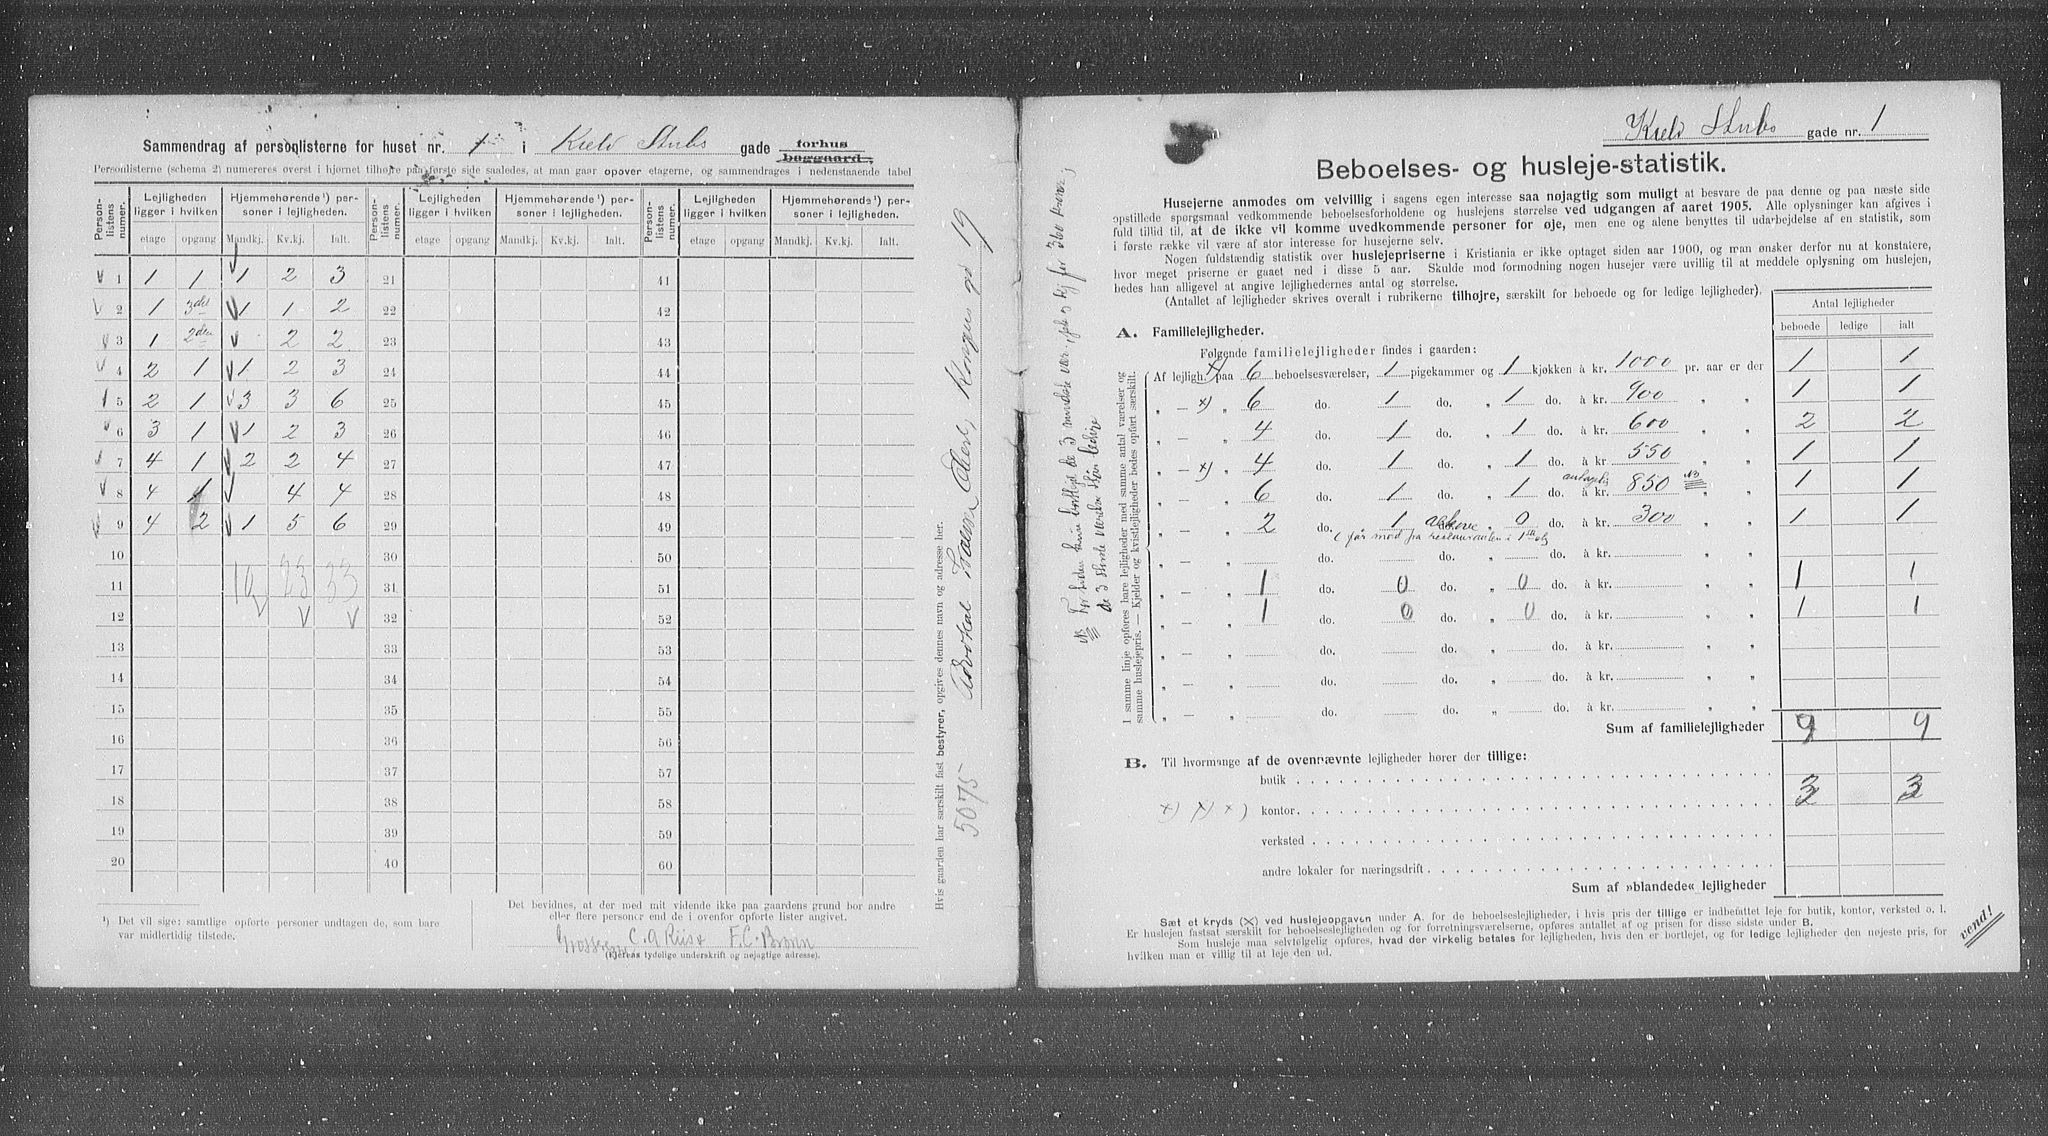 Sammendrag af personlisterne for huset nr. 1 i Kield Stubs gade forhus baggaard.
Personlisterne (schema 2) numereres øverst i hjørnet tilhøire paa første side saaledes, at man gaar opover etagerne, og sammendrages i nedenstaaende tabel
Person-listens nummer. Lejligheden ligger i hvilken Hjemmehørende¹) personer i lejligheden. Person-listens nummer. Lejligheden ligger i hvilken Hjemmehørende¹) personer i lejligheden. Person-listens nummer. Lejligheden ligger i hvilken Hjemmehørende¹) personer i lejligheden.
etage opgang Mandkj. Kv.kj. Ialt. etage opgang Mandkj. Kv.kj. Ialt. etage opgang Mandkj. Kv.kj. Ialt.
1 1 1 1 2 3 21 41
2 1 3die 1 1 2 22 42
3 1 2den 2 2 23 43
4 2 1 1 2 3 24 44
5 2 1 3 3 6 25 45
6 3 1 1 2 3 26 46
7 4 1 2 2 4 27 47
8 4 1 4 4 28 48
9 4 2 1 5 6 29 49
10 30 50
11 10 23 33 31 51
12 32 52
13 33 53
14 34 54
15 35 55
16 36 56
17 37 57
18 38 58
19 39 59
20 40 60
¹) Det vil sige: samtlige opførte personer undtagen de, som bare
var midlertidig tilstede.
Det bevidnes, at der med mit vidende ikke paa gaardens grund bor andre
eller flere personer end de i ovenfor opførte lister angivet.
C. A. Riis & F. C. Bronn
(Ejerens tydelige underskrift og nøjagtige adresse).
Hvis gaarden har særskilt fast bestyrer, opgives dennes navn og adresse her.
Advokat Kongens gd 19
5075
Kield Stubs gade nr. 1
Beboelses- og husleje-statistik.
Husejerne anmodes om velvillig i sagens egen interesse saa nøjagtig som muligt at besvare de paa denne og paa næste side
opstillede spørgsmaal vedkommende beboelsesforholdene og huslejens størrelse ved udgangen af aaret 1905. Alle oplysninger kan afgives i
fuld tillid til, at de ikke vil komme uvedkommende personer for øje, men ene og alene benyttes til udarbejdelse af en statistik, som
i første række vil være af stor interesse for husejerne selv.
Nogen fuldstændig statistik over huslejepriserne i Kristiania er ikke optaget siden aar 1900, og man ønsker derfor nu at konstatere,
hvor meget priserne er gaaet ned i disse 5 aar. Skulde mod formodning nogen husejer være uvillig til at meddele oplysning om huslejen,
bedes han alligevel at angive lejlighedernes antal og størrelse.
(Antallet af lejligheder skrives overalt i rubrikerne tilhøjre, særskilt for beboede og for ledige lejligheder).
Antal lejligheder
beboede ledige ialt
A. Familielejligheder.
Følgende familielejligheder findes i gaarden:
Af lejligh. x) paa 6 beboelsesværelser, 1 pigekammer og 1 kjøkken à kr. 1000 pr. aar er der 1 1
„ — x) „ 6 do. 1 do. „ 1 do. à kr. 900 „ „ 1 1
„ — „ 4 do. 1 do. „ 1 do. à kr. 600 „ „ 2 2
„ — x) „ 4 do. 1 do. „ 1 do. à kr. 550 „ „ 1 1
„ — „ 6 do. 1 do. „ 1 do. antagelig à kr. 850 NB „ 1 1
„ — „ 2 do. 1 alkove „ 0 do. à kr. 300 „ „ 1 1
(før med fra restauranten i 1ste etg
„ — „ do. do. „ do. à kr. „ „
„ — „ 1 do. 0 do. „ 0 do. à kr. „ „ 1 1
„ — „ 1 do. 0 do. „ 0 do. à kr. „ „ 1 1
„ — „ do. do. „ do. à kr. „ „
„ — „ do. do. „ do. à kr. „ „
„ — „ do. do. „ do. à kr. „ „
Sum af familielejligheder 9 9
I samme linje opføres bare lejligheder med samme antal værelser og
samme huslejepris. — Kjelder og kvistlejligheder bedes opført særskilt.
B. Til hvormange af de ovennævnte lejligheder hører der tillige:
butik
x) x) x) kontor 3 3
verksted
andre lokaler for næringsdrift
Sum af »blandede« lejligheder
Sæt et kryds (X) ved huslejeopgaven under A. for de beboelseslejligheder, i hvis pris der tillige er indbefattet leje for butik, kontor, verksted o. l.
Er huslejen fastsat særskilt for beboelseslejligheden og for forretningsværelserne, opføres antallet af og prisen for disse sidste under B.
Som husleje maa selvfølgelig opføres, hvad der virkelig betales for lejligheden, hvis den er bortlejet, og for ledige lejligheder den nøjeste pris, for
hvilken man er villig til at leje den ud.
vend!